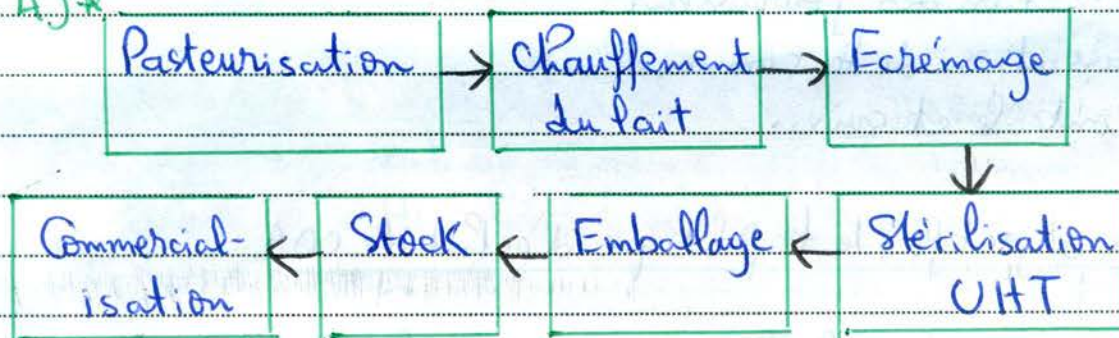 A)*
Pasteurisation → Chauffement du lait → Ecrémage
Stérilisation UHT
Emballage
Stock
Commercial-
isation